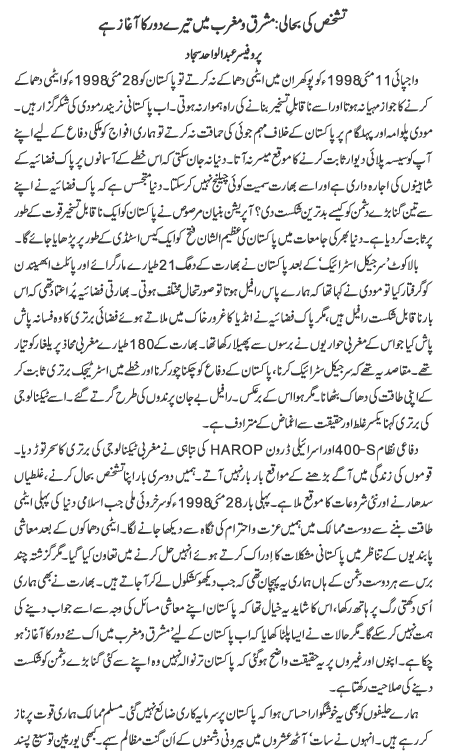 تشخص کی بحالی: مشرق و مغرب میں تیرے دور کا آغاز ہے
پروفیسر عبدالواحد سجاد
واجپائی 11 مئی 1998ء کو پوکھران میں ایٹمی دھماکے نہ کرتے تو پاکستان کو 28 مئی 1998ء کو ایٹمی دھماکے
کرنے کا جواز مہیا نہ ہوتا اور اسے ناقابل تسخیر بنانے کی راہ ہموار نہ ہوتی۔ اب پاکستانی نریندر مودی کی شکر گزار ہیں۔
مودی پلوامہ اور پہلگام پر پاکستان کے خلاف مہم جوئی کی حماقت نہ کرتے تو ہماری افواج کو ملکی دفاع کے لیے اپنے
آپ کو سیسہ پلائی دیوار ثابت کرنے کا موقع میسر نہ آتا۔ دنیا نہ جان سکتی کہ اس خطے کے آسمانوں پر پاک فضائیہ کے
شاہینوں کی اجارہ داری ہے اور اسے بھارت سمیت کوئی چیلنج نہیں کر سکتا۔ دنیا متجسس ہے کہ پاک فضائیہ نے اپنے
سے تین گنا بڑے دشمن کو کیسے بدترین شکست دی؟ آپریشن بنیان مرصوص نے پاکستان کو ایک ناقابل تسخیر قوت کے طور پر
ثابت کر دیا ہے۔ دنیا بھر کی جامعات میں پاکستان کی عظیم الشان فتح کو ایک کیس اسٹڈی کے طور پر پڑھایا جائے گا۔
بالاکوٹ 'سرجیکل اسٹرائیک' کے بعد پاکستان نے بھارت کے دو مگ 21 طیارے مار گرائے اور پائلٹ ابھینندن
کو گرفتار کیا تو مودی نے کہا تھا کہ ہمارے پاس رافیل ہوتا تو صورتحال مختلف ہوتی۔ بھارتی فضائیہ پُر اعتماد تھی کہ اس
بار ناقابل شکست رافیل ہیں، مگر پاک فضائیہ نے انڈیا کا غرور خاک میں ملاتے ہوئے فضائی برتری کا وہ فسانہ پاش
پاش کیا جو اس کے مغربی حواریوں نے برسوں سے پھیلا رکھا تھا۔ بھارت کے 180 طیارے مغربی محاذ پر یلغار کو تیار
تھے۔ مقاصد یہ تھے کہ سرجیکل سٹرائیک کرنا، پاکستان کے دفاع کو چکنا چور کرنا اور خطے میں اسٹریٹیجک برتری ثابت کر
کے اپنی طاقت کی دھاک بٹھانا۔ مگر ہوا اس کے برعکس۔ رافیل بے جان پرندوں کی طرح گرتے گئے۔ اسے ٹیکنالوجی
کی برتری کہنا یکسر غلط اور حقیقت سے اغماض کے مترادف ہے۔
دفاعی نظام S-400 اور اسرائیلی ڈرون HAROP کی تباہی نے مغربی ٹیکنالوجی کی برتری کا سحر توڑ دیا۔
قوموں کی زندگی میں آگے بڑھنے کے مواقع بار بار نہیں آتے۔ ہمیں دوسری بار اپنا تشخص بحال کرنے، غلطیاں
سدھارنے اور نئی شروعات کا موقع ملا ہے۔ پہلی بار 28 مئی 1998ء کو سرخروئی ملی جب اسلامی دنیا کی پہلی ایٹمی
طاقت بننے سے دوست ممالک میں ہمیں عزت و احترام کی نگاہ سے دیکھا جانے لگا۔ ایٹمی دھماکوں کے بعد معاشی
پابندیوں کے تناظر میں پاکستانی مشکلات کا ادراک کرتے ہوئے انہیں حل کرنے میں تعاون کیا گیا۔ مگر گزشتہ چند
برس سے ہر دوست و دشمن کے ہاں ہماری یہ پہچان تھی کہ جب دیکھو کشکول لے کر آ جاتے ہیں۔ بھارت نے بھی ہماری
اُسی دکھتی رگ پر ہاتھ رکھا، اس کا شاید یہ خیال تھا کہ پاکستان اپنے معاشی مسائل کی وجہ سے اسے جواب دینے کی
ہمت نہیں کر سکے گا۔ مگر حالات نے ایسا پلٹا کھایا کہ اب پاکستان کے لیے 'مشرق و مغرب میں اک نئے دور کا آغاز' ہو
چکا ہے۔ اپنوں اور غیروں پر یہ حقیقت واضح ہو گئی کہ پاکستان تر نوالہ نہیں وہ اپنے سے کئی گنا بڑے دشمن کو شکست
دینے کی صلاحیت رکھتا ہے۔
ہمارے حلیفوں کو بھی یہ خوشگوار احساس ہوا کہ پاکستان پر سرمایہ کاری ضائع نہیں گئی۔ مسلم ممالک ہماری قوت پر ناز
کر رہے ہیں۔ انہوں نے سات' آٹھ عشروں میں بیرونی دشمنوں کے اَن گنت مظالم سہے۔ کبھی یورپین توسیع پسند